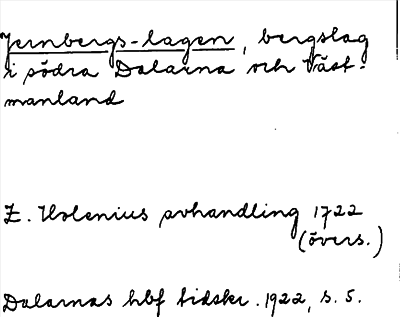 Jernbergs-lagen, bergslag
i södra Dalarna och Väst-
manland
Z. Holenius avhandling 1722
(övers.)
Dalarnas hbf tidskr. 1922, s. 5.